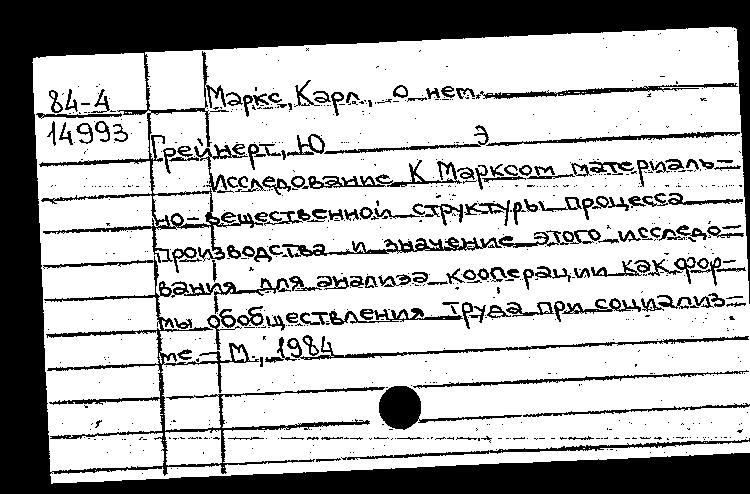 84-4
14993
Маркс, Карл, о нем.
Грейнерт, Ю Э
Исследование К Марксом материаль=
но-вещественной структуры процесса
производства и значение этого исследо=
вания для анализа кооперации как фор-
мы обобществления труда при социализ=
ме.- М., 1984